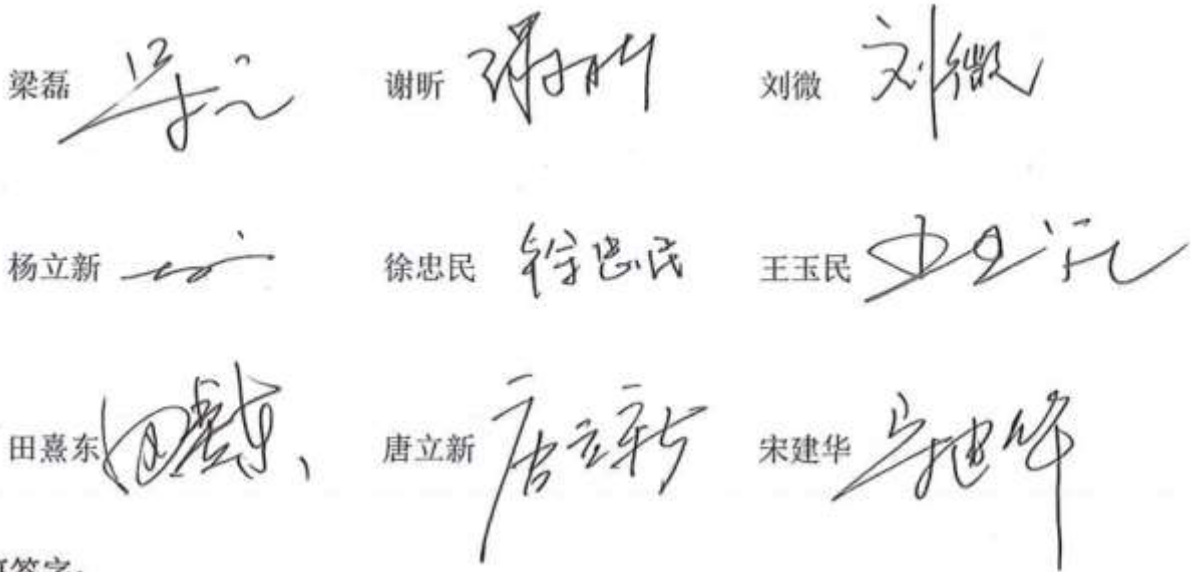 梁磊 谢昕 谢昕 刘微 刘微
杨立新 徐忠民 徐忠民 王玉民
田熹东 田熹东 唐立新 唐立新 宋建华 宋建华
签字：